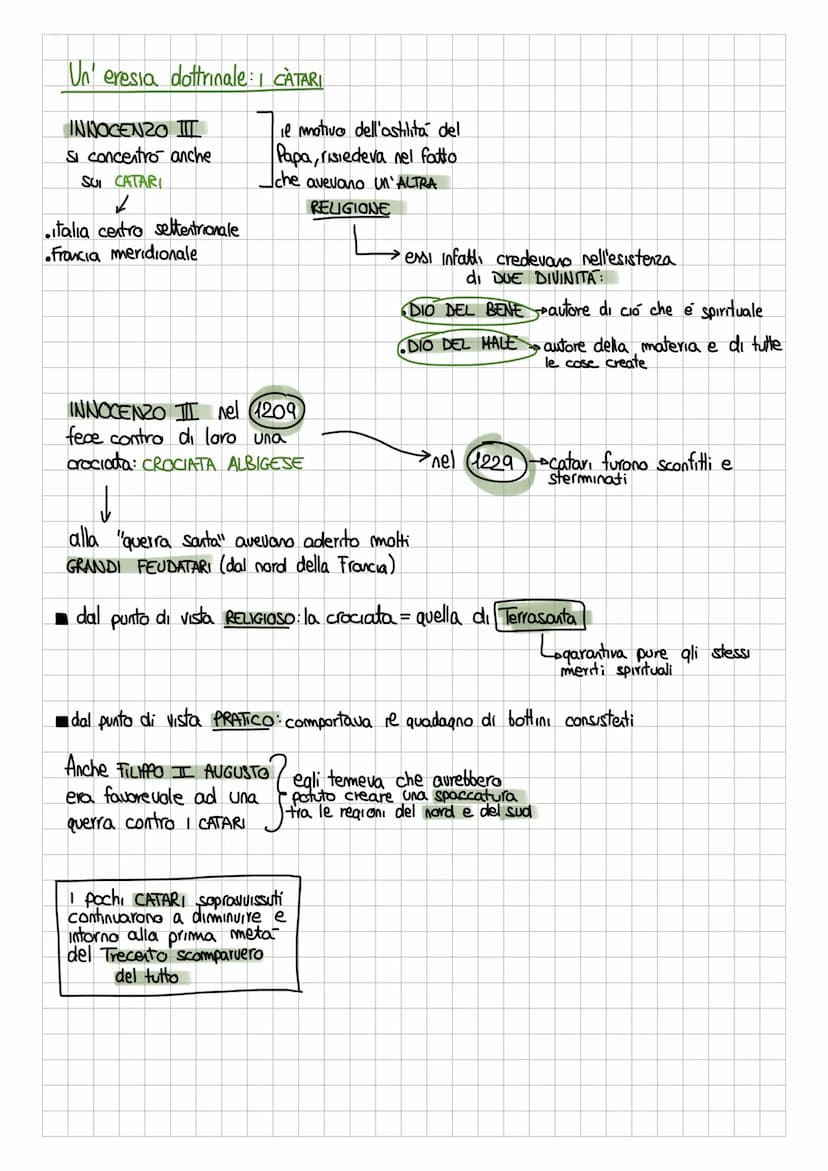 Un' eresia dottrinale: i CÀTARI
INNOCENZO III
si concentrò anche
sui CATARI
.italia centro settentrionale
.Francia meridionale
il motivo dell'ostilità del
Papa, risiedeva nel fatto
che avevano un'ALTRA
RELIGIONE
essi infatti credevano nell'esistenza
di DUE DIVINITÀ:
.DIO DEL BENE → autore di ciò che è spirituale
.DIO DEL MALE → autore della materia e di tutte
le cose create
INNOCENZO III nel 1209
fece contro di loro una
crociata: CROCIATA ALBIGESE
→ nel 1229 → catari furono sconfitti e
sterminati
alla "guerra santa" avevano aderito molti
GRANDI FEUDATARI (dal nord della Francia)
▪ dal punto di vista RELIGIOSO: la crociata = quella di Terrasanta
garantiva pure gli stessi
meriti spirituali
▪ dal punto di vista PRATICO: comportava il guadagno di bottini consistenti
Anche FILIPPO II AUGUSTO
era favorevole ad una
guerra contro i CATARI
egli temeva che avrebbero
potuto creare una spaccatura
tra le regioni del nord e del sud
I pochi CATARI sopravvissuti
continuarono a diminuire e
intorno alla prima metà
del Trecento scomparvero
del tutto